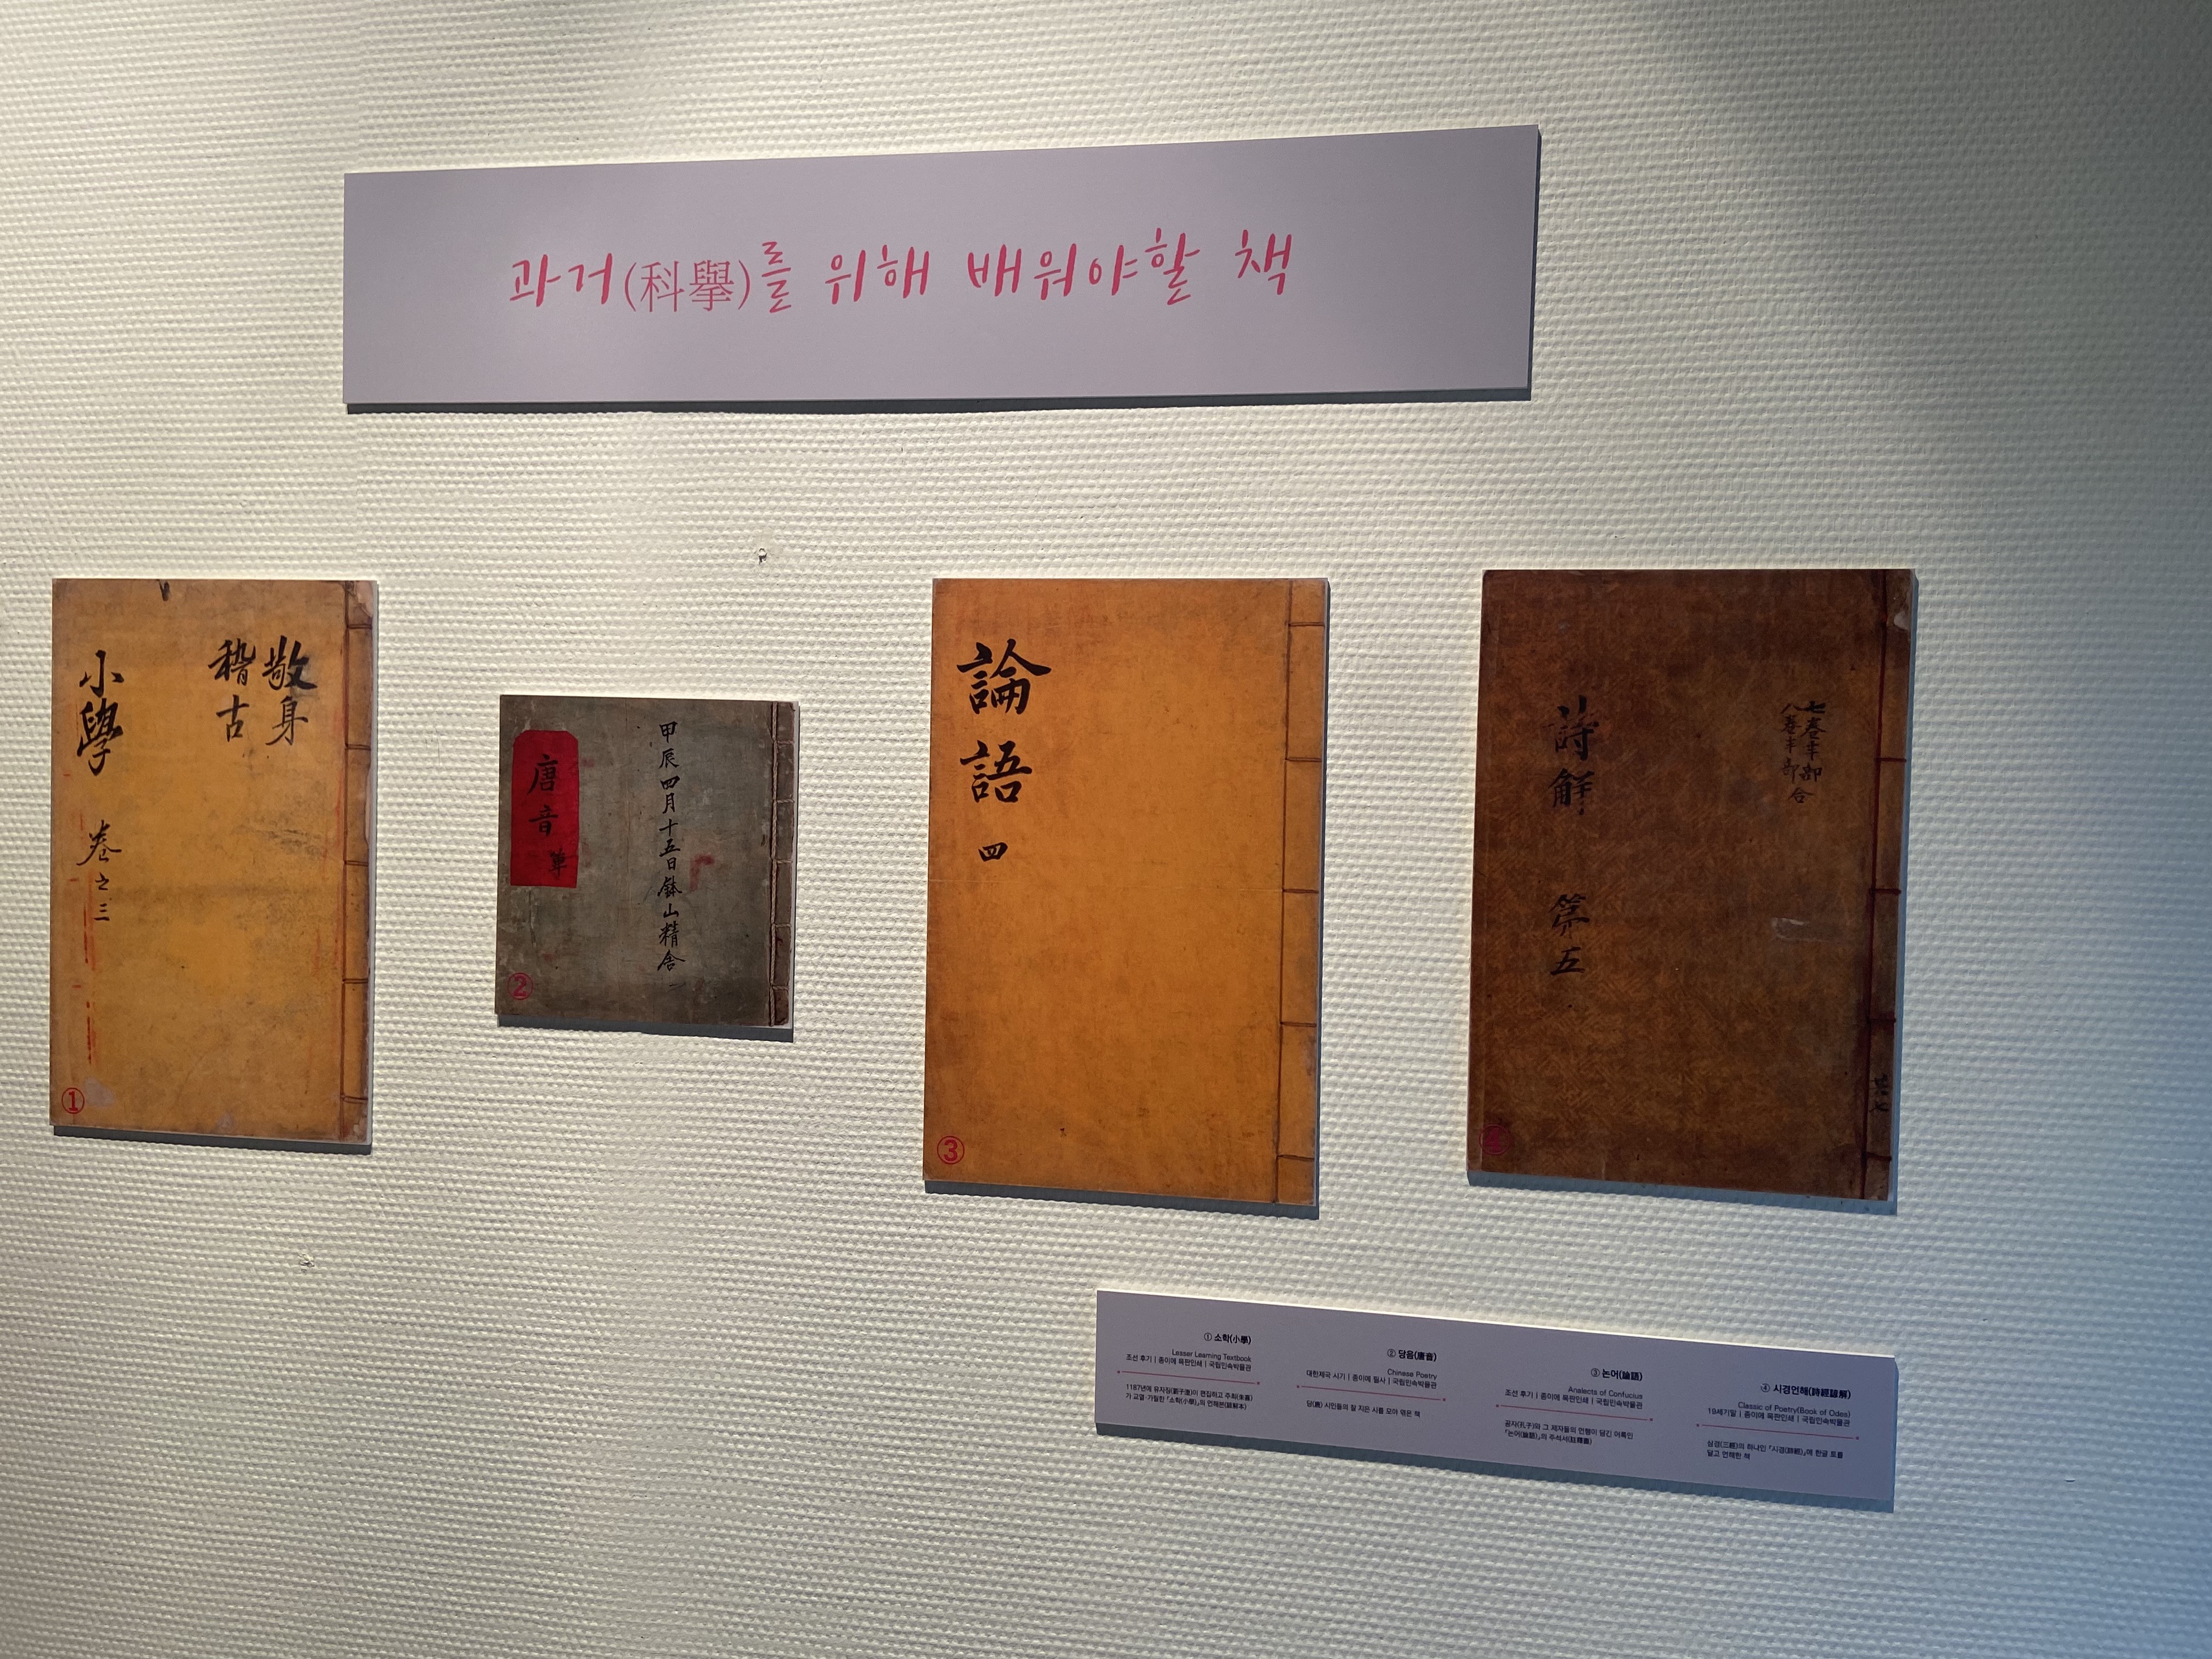 과거(科擧)를 위해 배워야할 책
敬身
稽古
小學 卷之三
①
甲辰四月十五日鉢山精舍
唐音 單
②
論語 四
③
七卷半部
八卷半部合
詩解 第五
④
① 소학(小學)
Lesser Learning Textbook
조선 후기 | 종이에 목판인쇄 | 국립민속박물관
1187년에 유자징(劉子澄)이 편집하고 주희(朱熹)
가 교열·가필한 『소학(小學)』의 언해본(諺解本)
② 당음(唐音)
Chinese Poetry
대한제국 시기 | 종이에 필사 | 국립민속박물관
당(唐) 시인들의 잘 지은 시를 모아 엮은 책
③ 논어(論語)
Analects of Confucius
조선 후기 | 종이에 목판인쇄 | 국립민속박물관
공자(孔子)와 그 제자들의 언행이 담긴 어록인
『논어(論語)』의 주석서(註釋書)
④ 시경언해(詩經諺解)
Classic of Poetry(Book of Odes)
19세기말 | 종이에 목판인쇄 | 국립민속박물관
삼경(三經)의 하나인 『시경(詩經)』에 한글 토를
달고 언해한 책